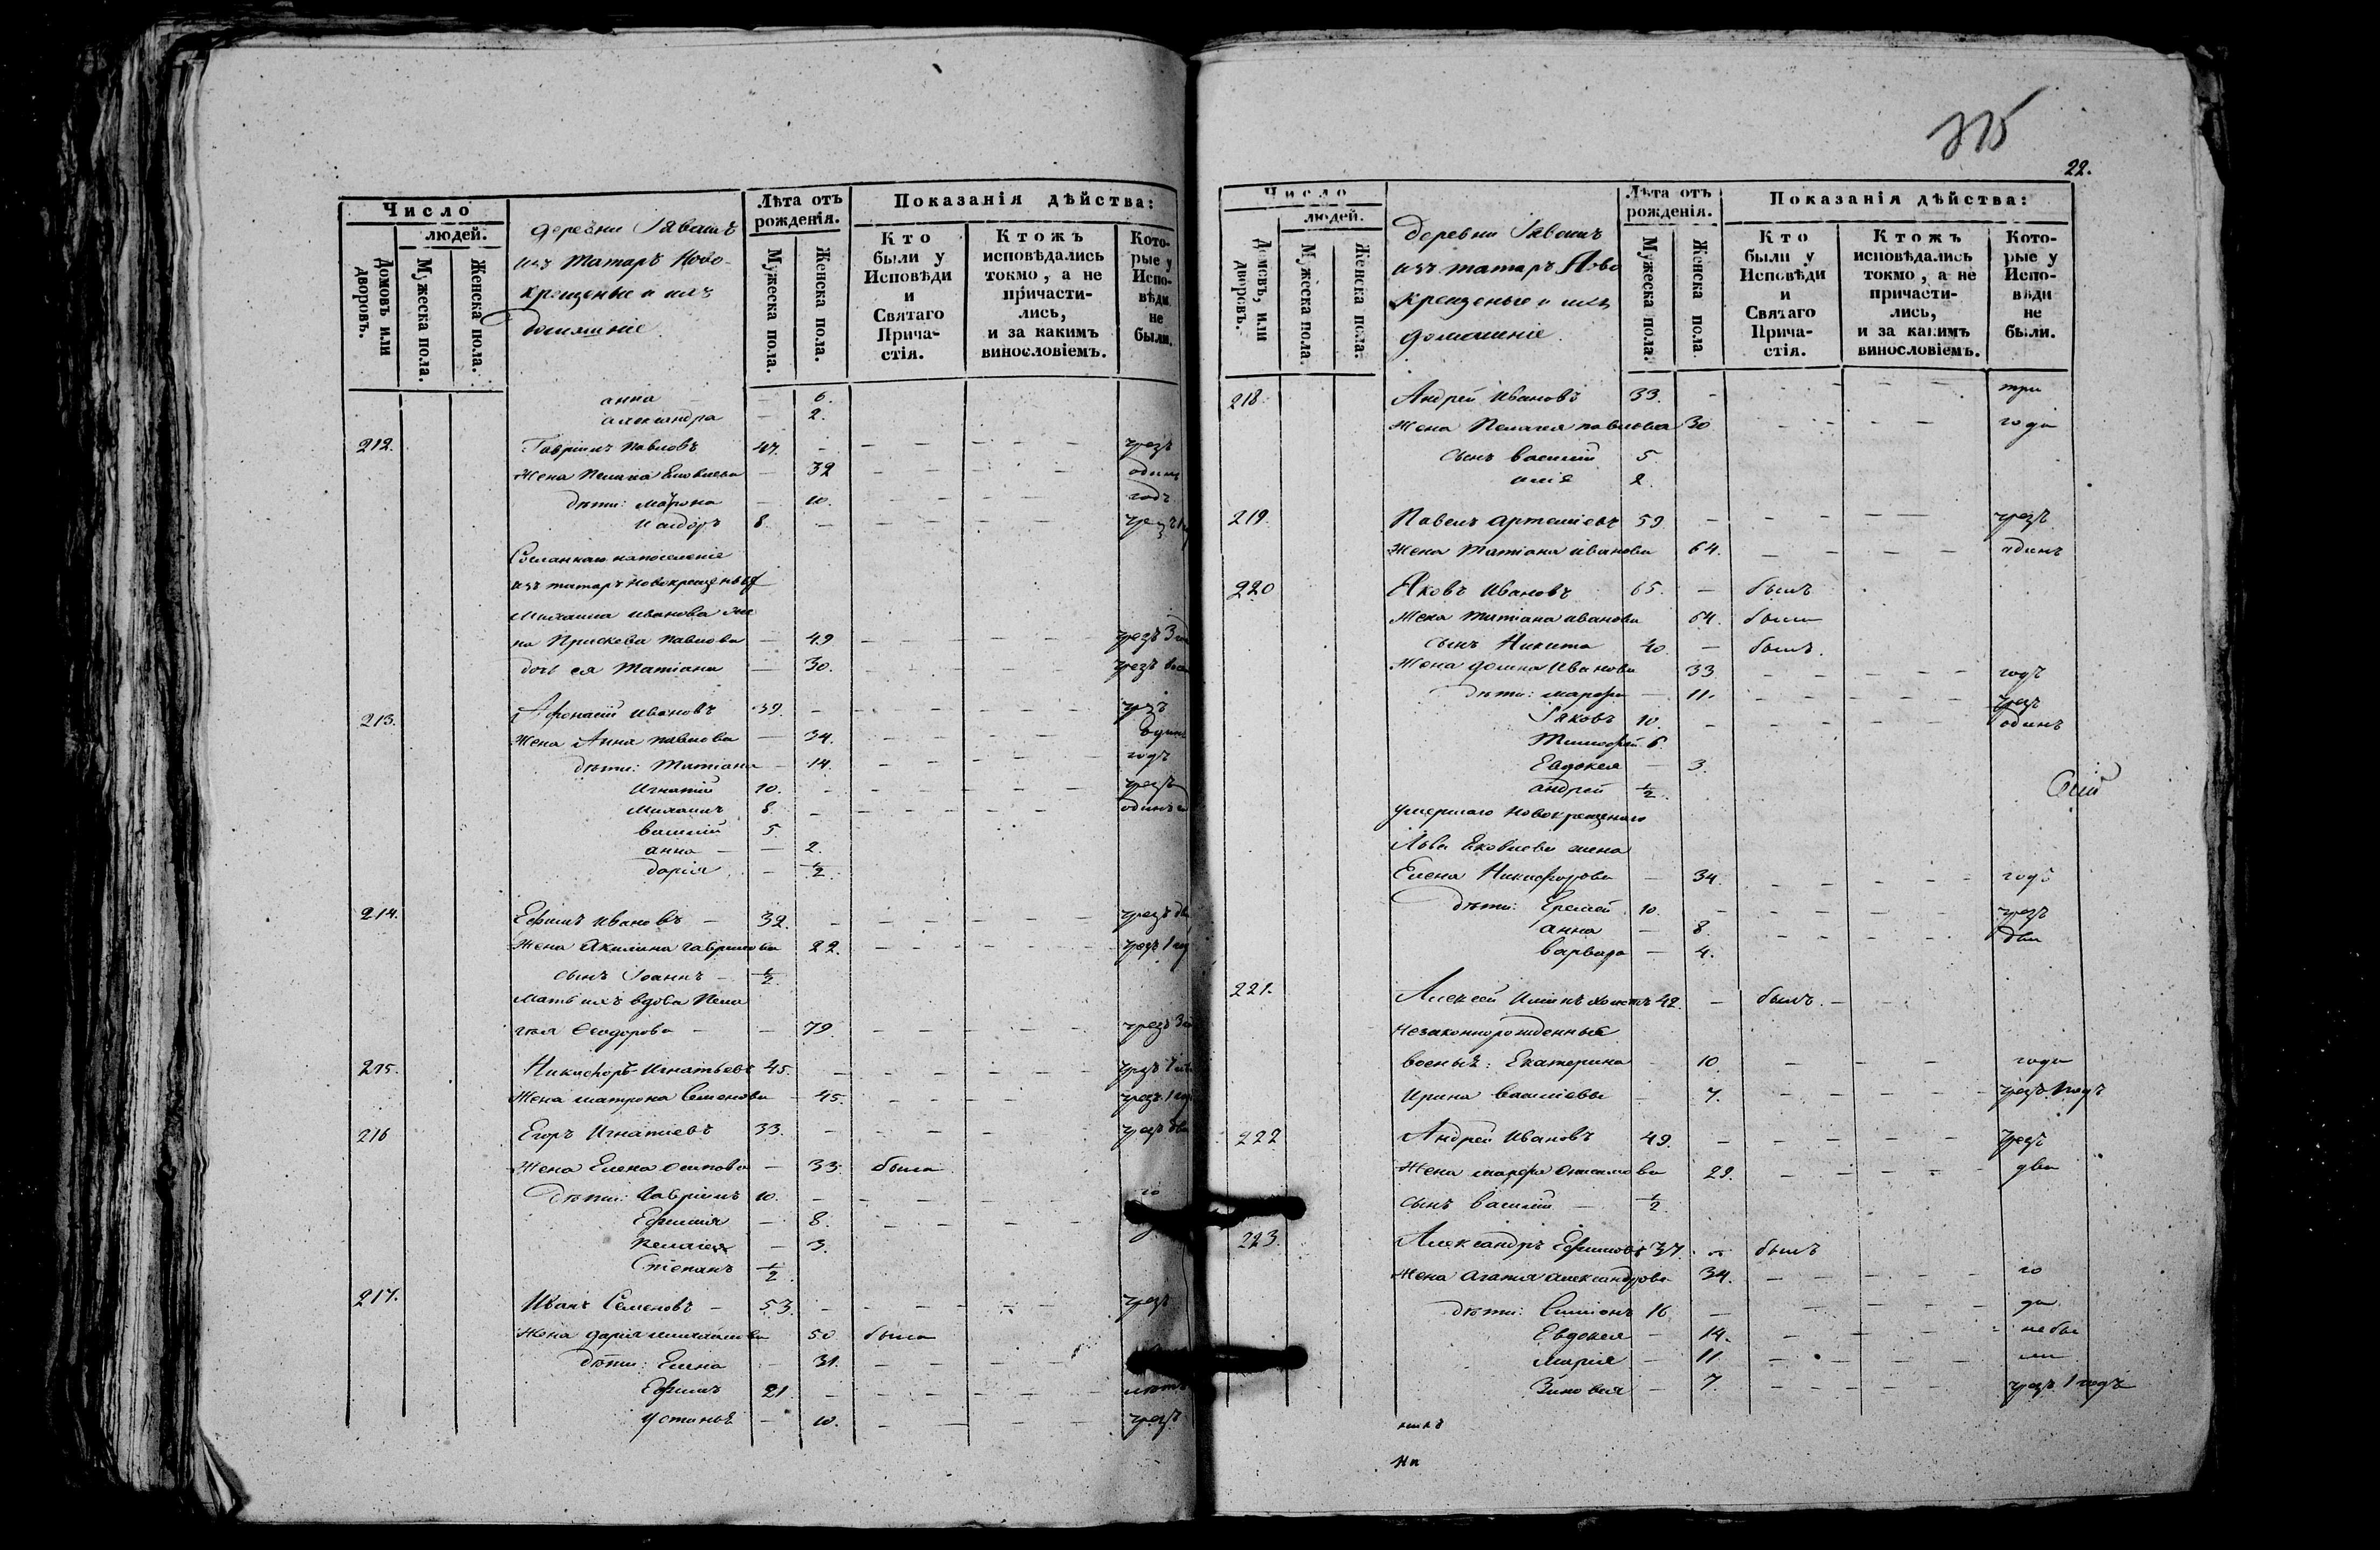 Число
людей.
Домовъ или дворовъ.
Мужеска пола.
Женска пола.
деревни
изъ татаръ Ново-
крещеные и ихъ
домашніе
Лѣта отъ рожденія.
Мужеска пола.
Женска пола.
Показанія дѣйства:
Кто были у Исповѣди и Святаго Прича-стія.
Ктожъ исповѣдались токмо, а не причасти-лись, и за какимъ винословіемъ.
Кото-рые у Испо-вѣди не были.
анна — 6.
александра — 2.
212. Гавріилъ Павловъ 47. чрезъ
Жена Пелагіа Яковлева — 32 одинъ
дѣти: Матрона — 10. годъ
8.
Сосланнаго на поселеніе
изъ татаръ новокрещеныхъ
Михаила Иванова же
на Прискева Павлова — 49 чрезъ 3
дочь ея Татіана — 30. чрезъ
213. Афонасій Ивановъ 39.
Жена Анна Павлова — 34.
дѣти: Татіана — 14. годъ
Игнатій 10. чрезъ
Михаилъ 8. одинъ
василій 5
анна — 2.
дарія — ½
214. Ефимъ Ивановъ — 32. чрезъ
Жена Акилина гаврилова 22. чрезъ 1
сынъ Іоаннъ — ½
Мать ихъ вдова Пела
гія Ѳеодорова — 79. чрезъ 3
215. Никифоръ Игнатьевъ 45. чрезъ
Жена матрона Семенова — 45. чрезъ 1
216 Егоръ Игнатіевъ 33. чрезъ
Жена Елена Осипова — 33. была
дѣти: Гавріилъ 10. го
Ефимія — 8.
Пелагея — 3.
Степанъ ½
217. Иванъ Семеновъ — 53. чрезъ
Жена дарія михайлова 50 была
дѣти: Елена — 31.
Ефимъ 21.
устинья — 10. чрезъ
22.
Число
людей.
Домовъ, или дворовъ.
Мужеска пола.
Женска пола.
деревни
изъ татаръ Ново
крещеные и ихъ
домашніе.
Лѣта отъ рожденія.
Мужеска пола.
Женска пола
Показанія дѣйства:
Кто были у Исповѣди и Святаго Прича-стія.
Ктожъ исповѣдались токмо, а не причасти-лись, и за какимъ винословіемъ.
Кото-рые у Испо-вѣди не были.
218. Андрей Ивановъ 33. — три
Жена Пелагея павлова 30 года
сынъ василій 5.
2.
219. Павелъ Артеміевъ 59 — чрезъ
Жена Татіана иванова 64. одинъ
220 Яковъ Ивановъ 65. — былъ
Жена Татіана иванова 64. была
сынъ Никита 40. — былъ.
Жена домна Иванова 33 годъ
дѣти: марфа — 11. чрезъ
Іяковъ 10 одинъ
Тимофей 6.
Евдокея — 3.
андрей ½
умершаго новокрещенаго
Льва Яковлева жена
Елена Никифорова — 34. годъ
дѣти: Еремей 10. чрезъ
анна — 8. два
варвара — 4.
221. Алексей 42. — былъ. —
незаконнорожденные
Екатерина 10. года
Ирина василіевы — 7. чрезъ 1 годъ
222 Андрей Ивановъ 49. чрезъ
Жена марфа 29. два
сынъ василій — ½
223. Александръ Ефимовъ 37. былъ
Жена агапія александрова 34. го
дѣти: Симіонъ 16 — да
Евдокея — 14. не бы
Марія — 11 ли
Зиновія — 7. чрезъ 1 годъ